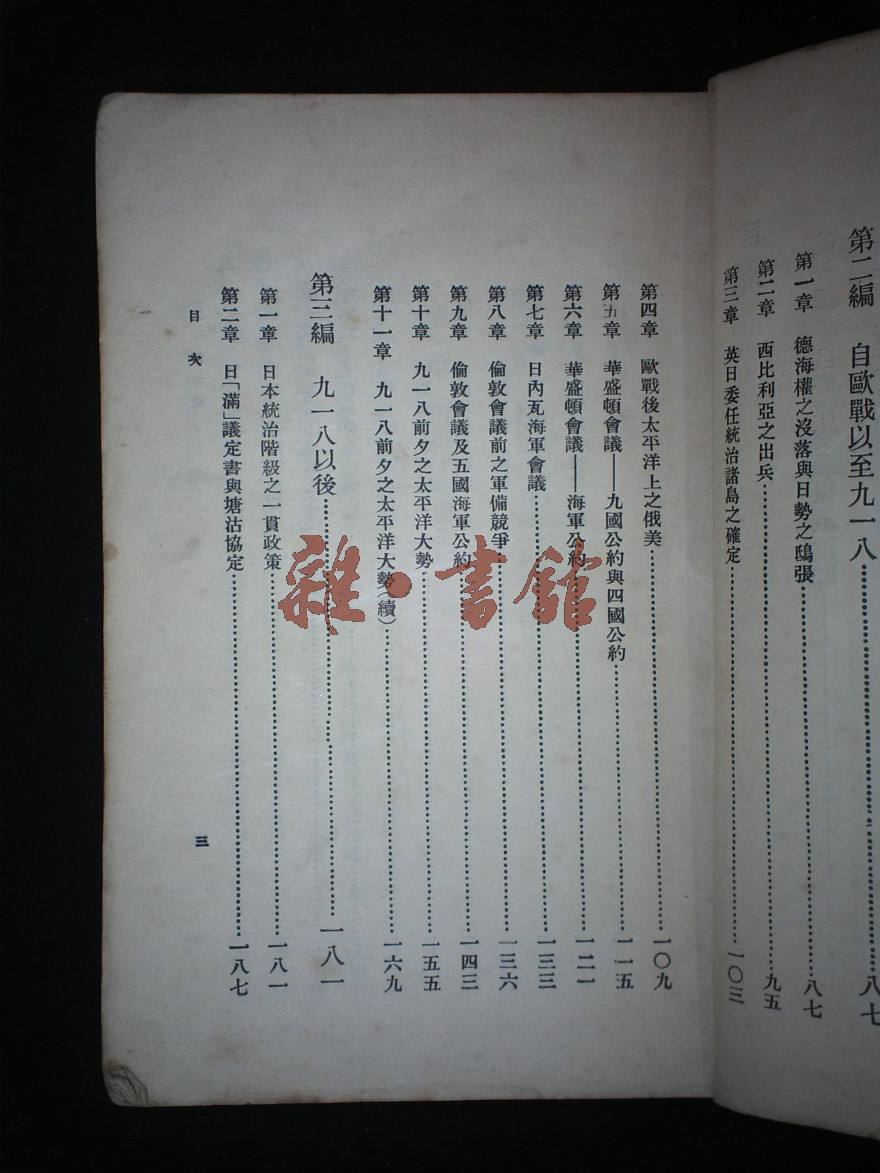 第二編 自歐戰以至九一八……八七
第一章 德海權之沒落與日勢之鴟張……八七
第二章 西比利亞之出兵……九五
第三章 英日委任統治諸島之確定……一〇三
第四章 歐戰後太平洋上之俄美……一〇九
第五章 華盛頓會議——九國公約與四國公約……一一五
第六章 華盛頓會議——海軍公約……一二一
第七章 日內瓦海軍會議……一三三
第八章 倫敦會議前之軍備競爭……一三六
第九章 倫敦會議及五國海軍公約……一四三
第十章 九一八前夕之太平洋大勢……一五五
第十一章 九一八前夕之太平洋大勢(續)……一六九
第三編 九一八以後……一八一
第一章 日本統治階級之一貫政策……一八一
第二章 日「滿」議定書與塘沽協定……一八七
目次
三
雜·書館